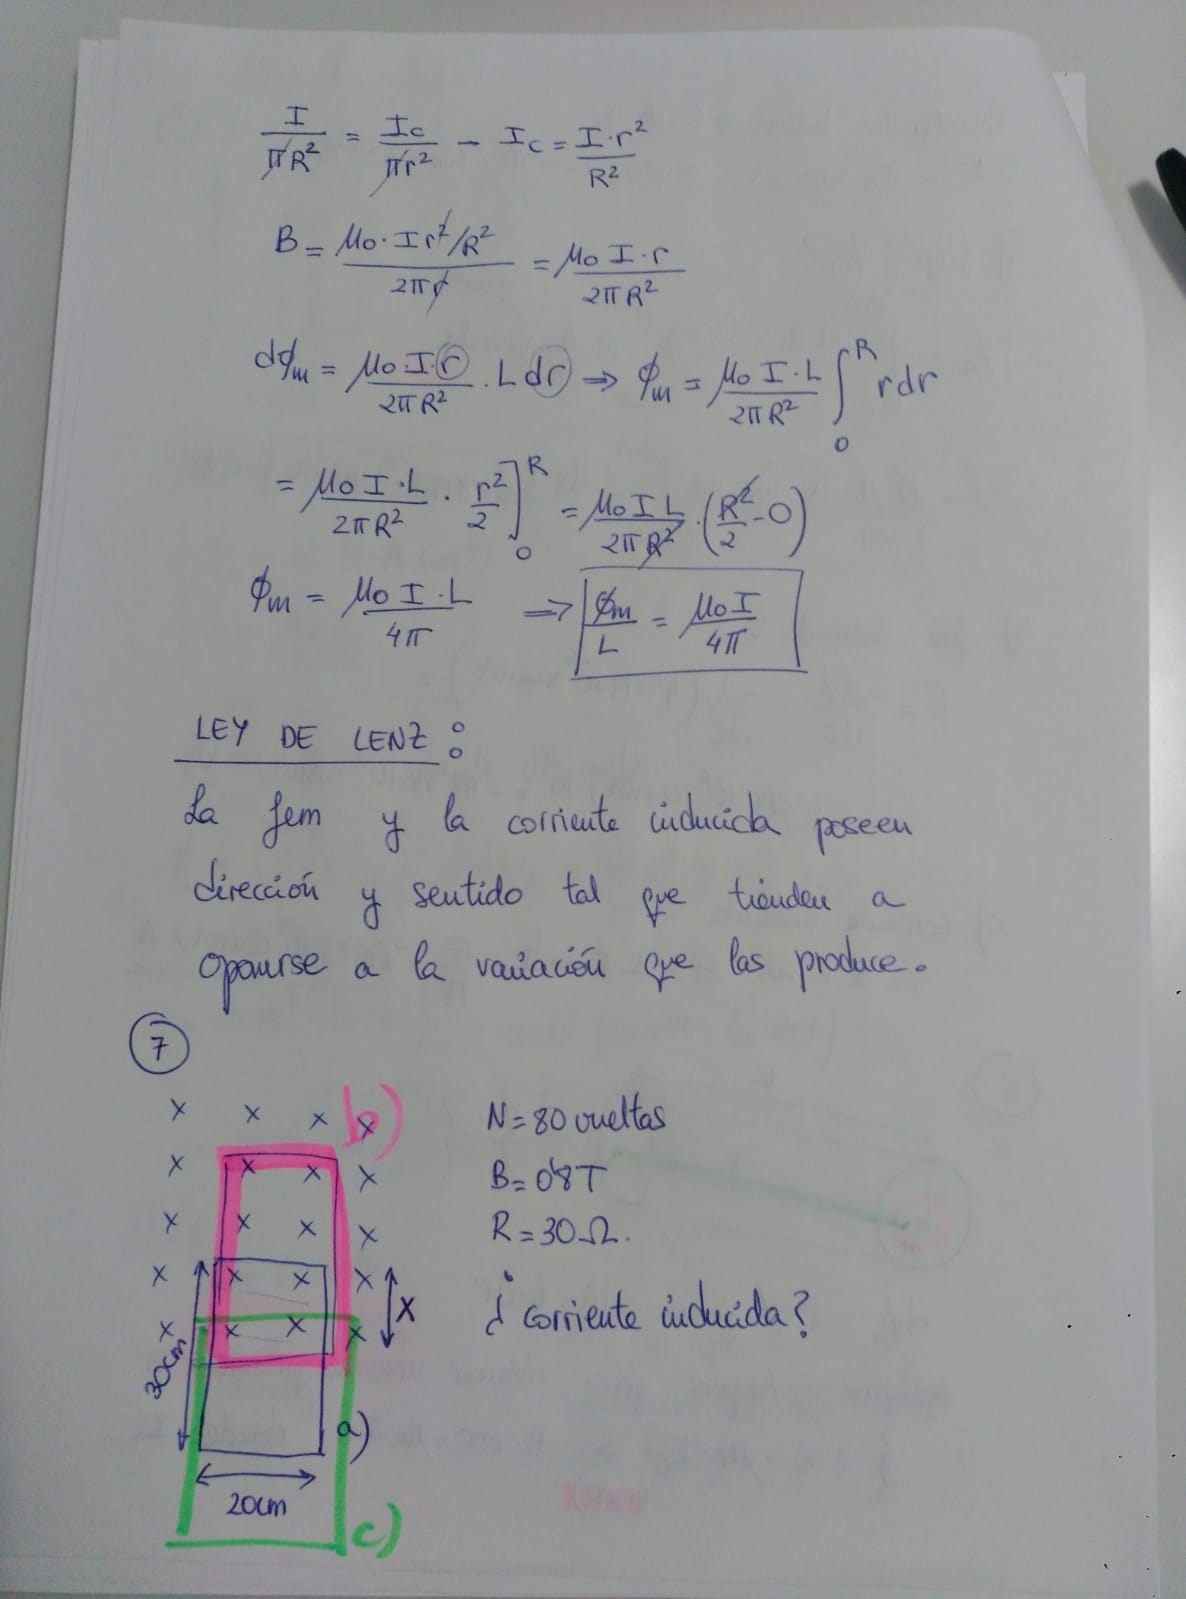 I/πR² = Ic/πr² - Ic = I·r²/R²
B = μ₀·Ir²/R² / 2πr = μ₀ I·r / 2πR²
dϕm = μ₀·I·r / 2πR² · L dr ⇒ ϕm = μ₀ I·L / 2πR² ∫₀ᴿ rdr
= μ₀ I·L / 2πR² · r²/2 ]₀ᴿ = μ₀ I L / 2π R² · (R²/2 - 0)
ϕm = μ₀ I·L / 4π ⇒ ϕm / L = μ₀ I / 4π
LEY DE LENZ :
La fem y la corriente inducida poseen
dirección y sentido tal que tienden a
oponerse a la variación que las produce.
7
b)
x x x x
x x x x
x x x x
x x x x
x x x x
N = 80 vueltas
B = 0'8T
R = 30Ω.
¿corriente inducida?
X
30cm
a)
20cm
c)